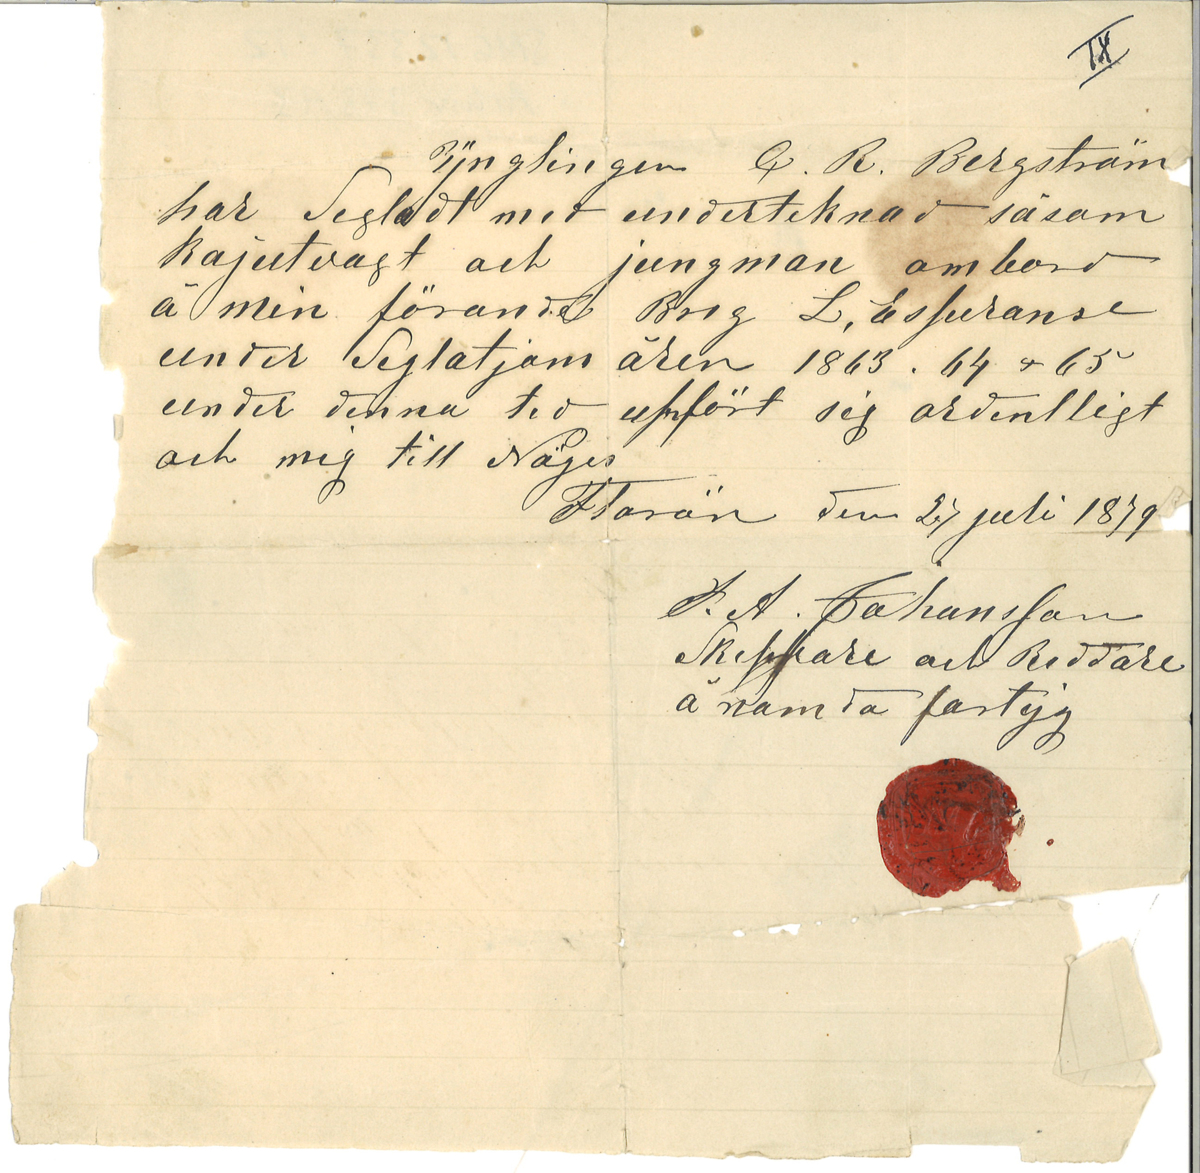 IX
Ynglingen C. R. Bergström
har Segladt med underteknad såsom
kajutvagt och jungman ombord
å min förande Brig L, Esperanse
under Seglatjom åren 1863. 64 & 65
under denna tid uppfört sig ordentligt
och mig till Nöges
den 27 juli 1879
A. Johansson
Skeppare och Reddare
å namda fartyg